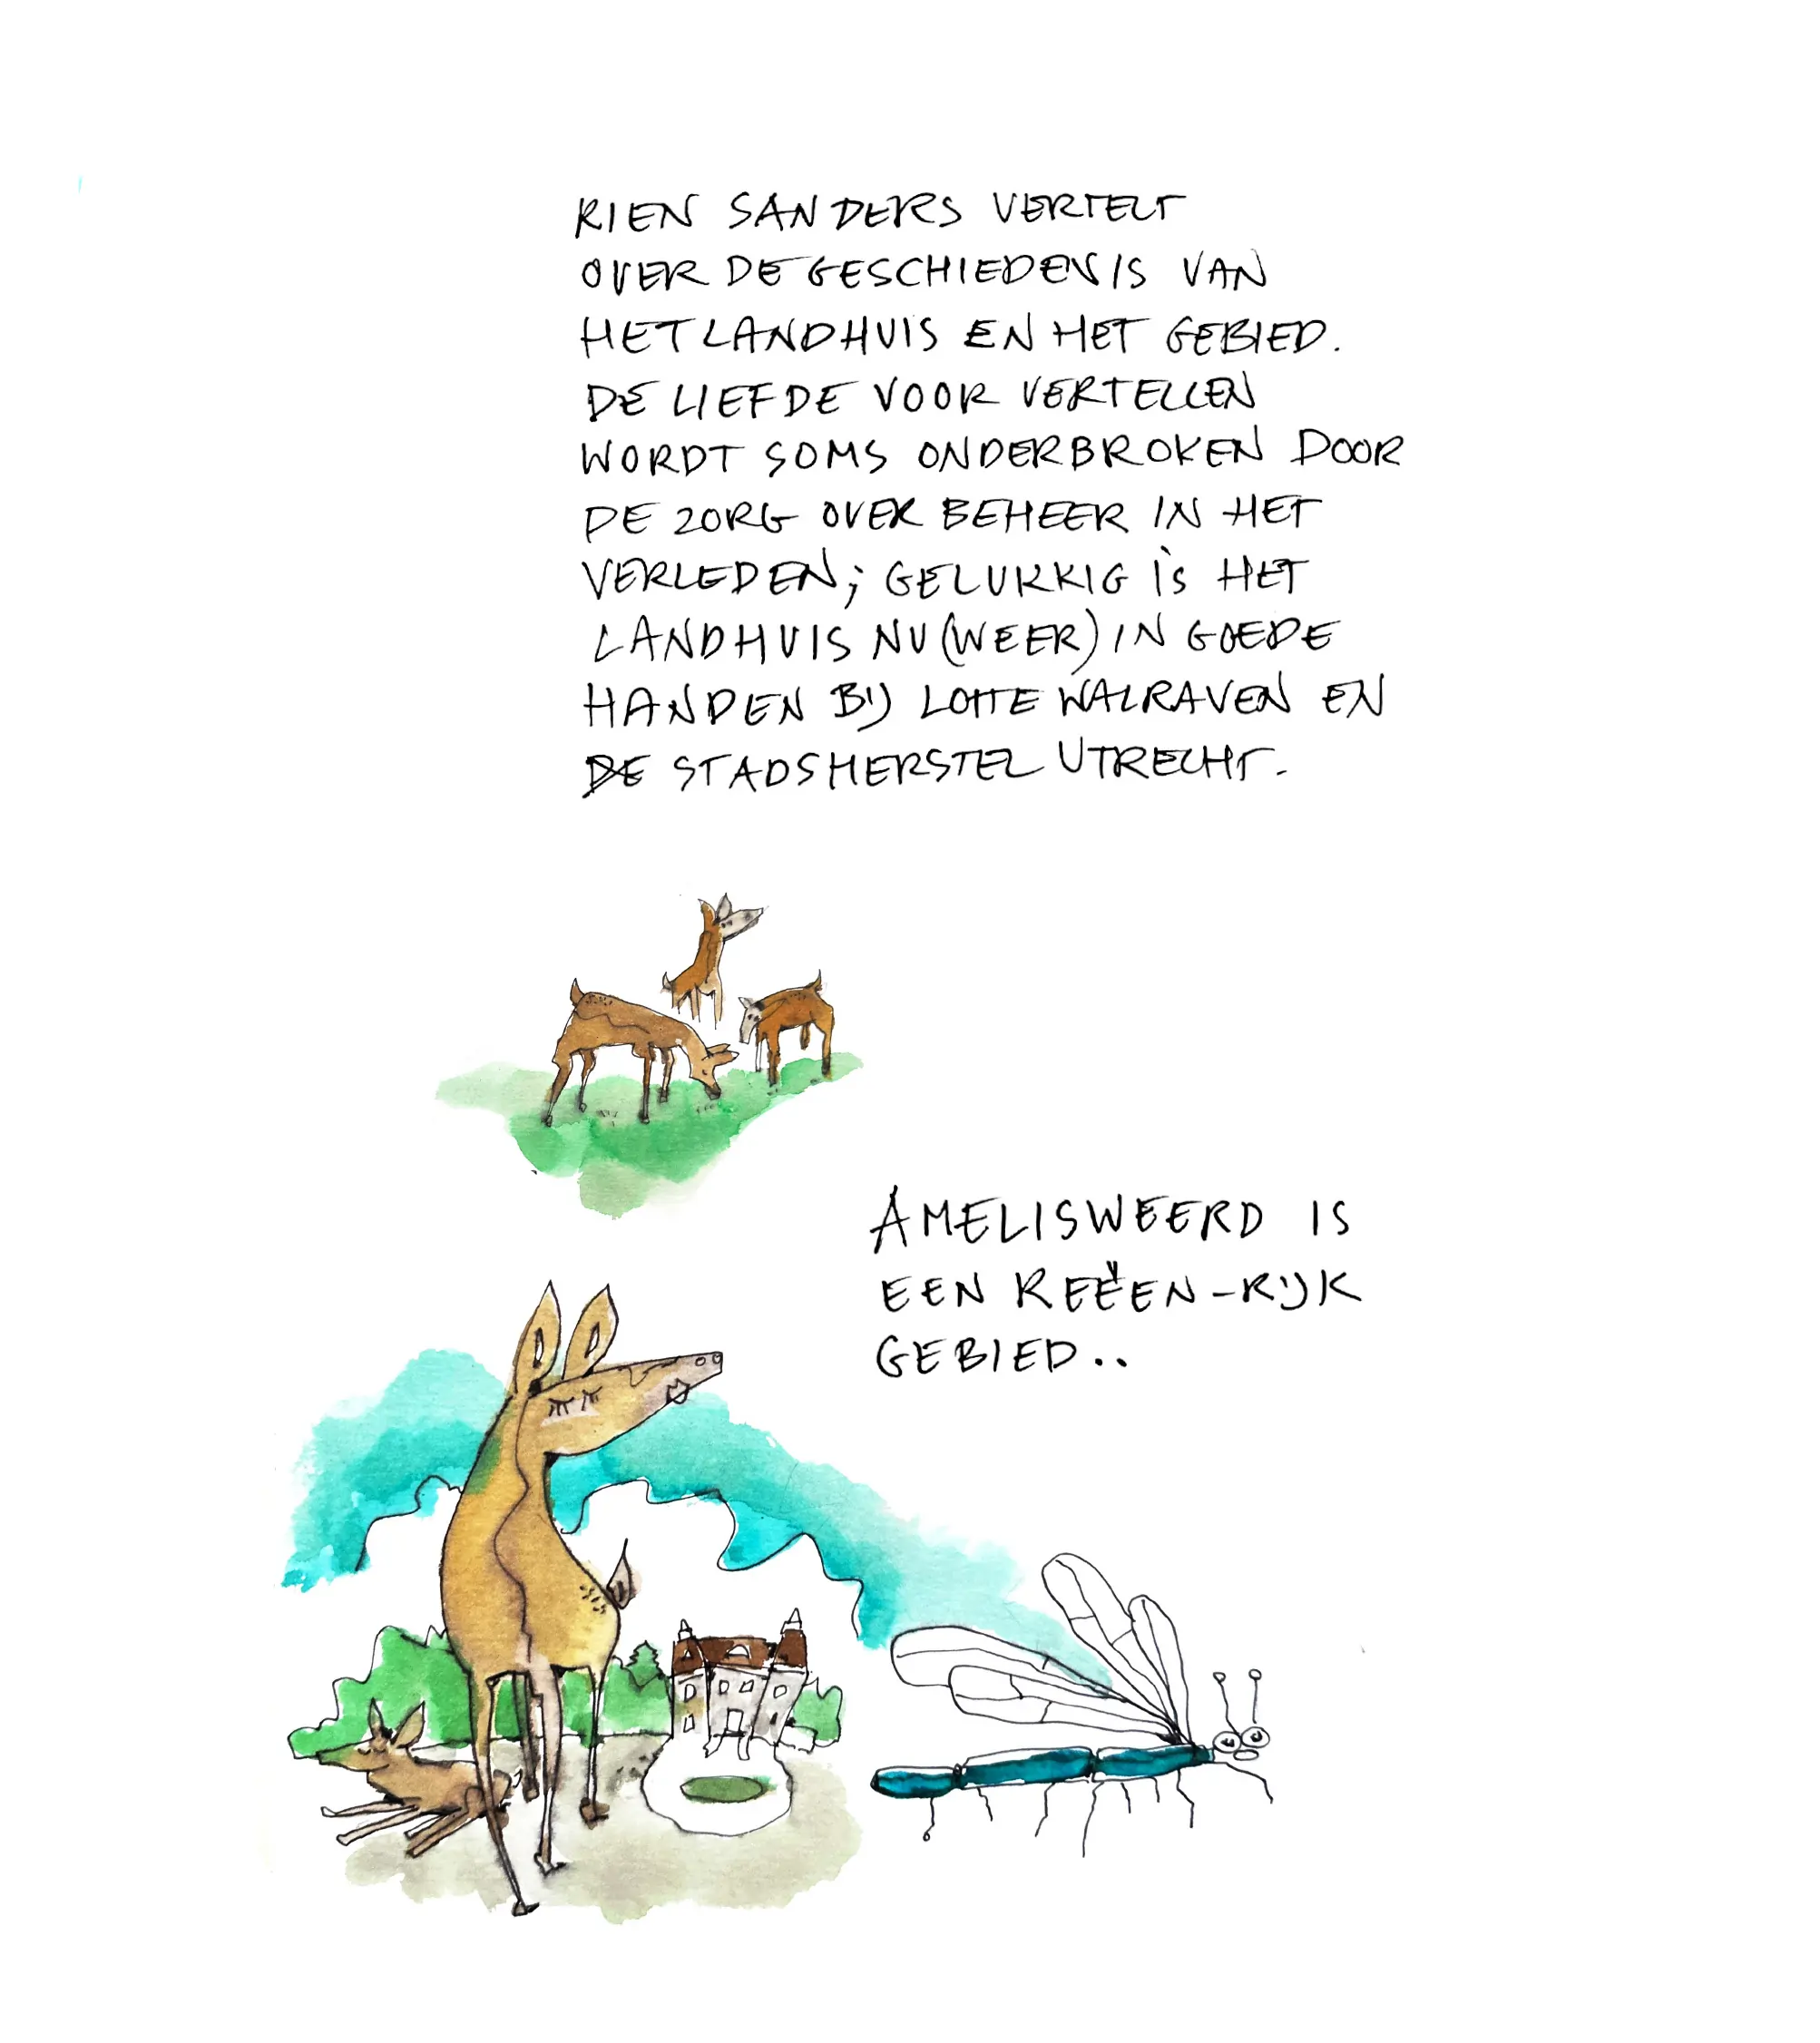 RIEN SANDERS VERTELT
OVER DE GESCHIEDENIS VAN
HET LANDHUIS EN HET GEBIED.
DE LIEFDE VOOR VERTELLEN
WORDT SOMS ONDERBROKEN DOOR
DE ZORG OVER BEHEER IN HET
VERLEDEN; GELUKKIG IS HET
LANDHUIS NU (WEER) IN GOEDE
HANDEN BIJ LOTTE WALRAVEN EN
DE STADSHERSTEL UTRECHT.
AMELISWEERD IS
EEN REEËN-RIJK
GEBIED..